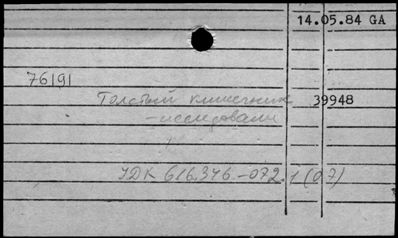 14.05.84 GA
76191
Толстый кишечник 39948
-исследован
УДК 616.346-072.1 (07)